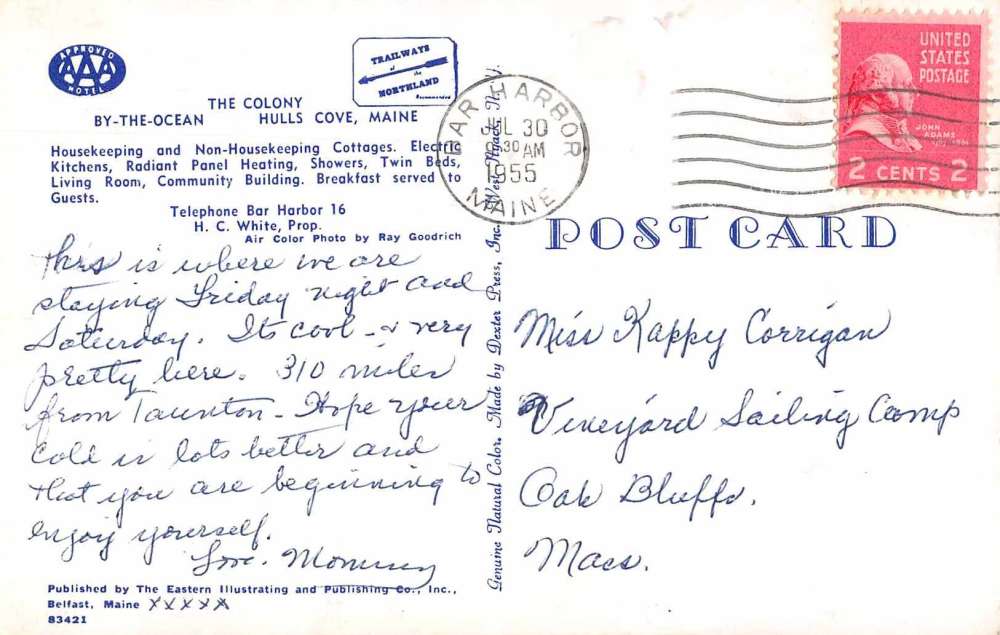 APPROVED
AAA
HOTEL
TRAILWAYS
of the
NORTHLAND
Recommended
THE COLONY
BY-THE-OCEAN HULLS COVE, MAINE
Housekeeping and Non-Housekeeping Cottages. Electric
Kitchens, Radiant Panel Heating, Showers, Twin Beds,
Living Room, Community Building. Breakfast served to
Guests.
Telephone Bar Harbor 16
H. C. White, Prop.
Air Color Photo by Ray Goodrich
This is where we are
staying Friday night and
Saturday. Its cool - & very
pretty here. 310 miles
from Taunton - Hope your
cold is lots better and
that you are beginning to
enjoy yourself.
Love. Mommy
Published by The Eastern Illustrating and Publishing Co., Inc.,
Belfast, Maine XXXXX
83421
Genuine Natural Color. Made by Dexter Press, Inc., West Nyack, N. Y.
BAR HARBOR
JUL 30
30 AM
1955
MAINE
UNITED
STATES
POSTAGE
JOHN
ADAMS
2 CENTS 2
POST CARD
Miss Kappy Corrigan
Vineyard Sailing Camp
Oak Bluffs.
Mass.